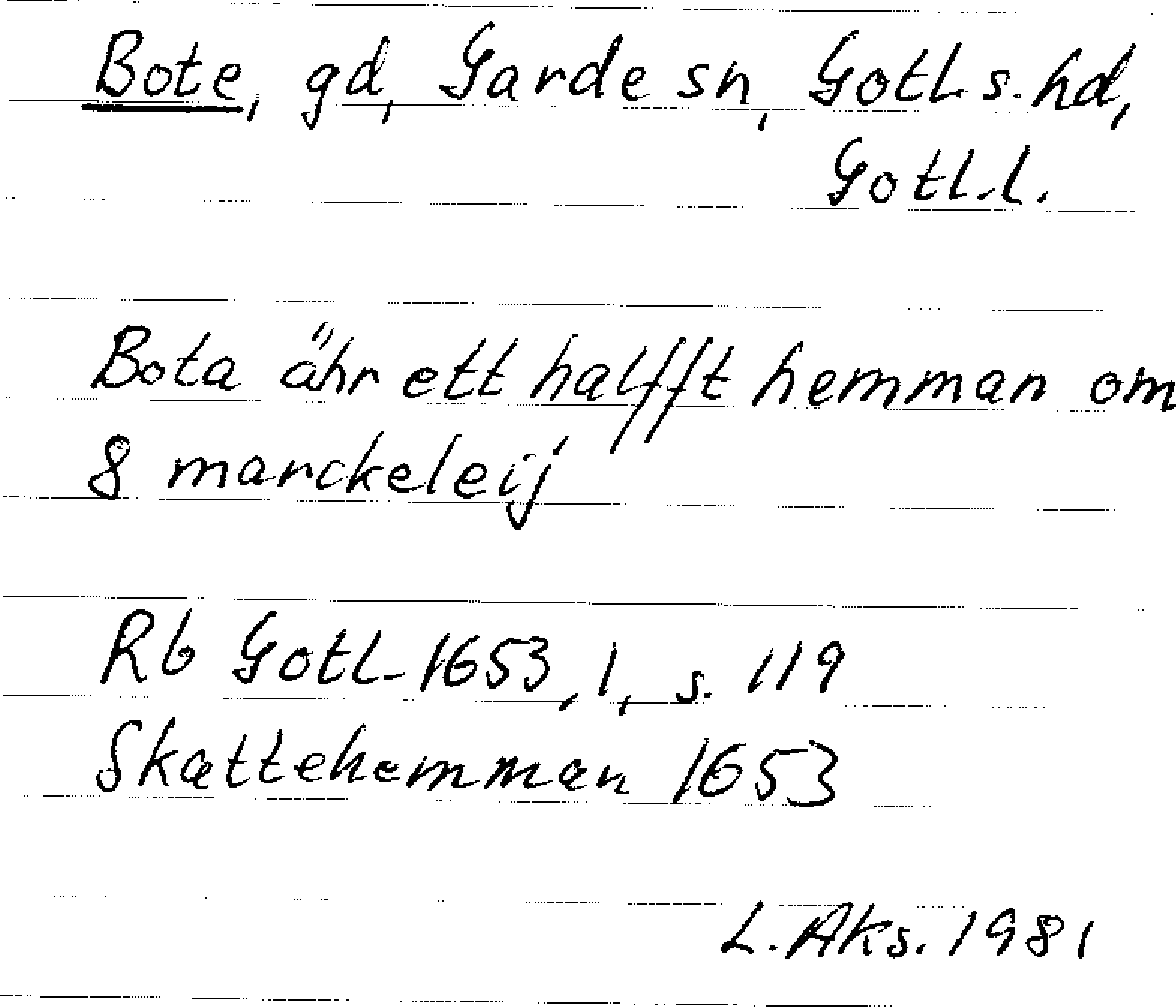 Bote, gd, Garde sn, Gotl. s. hd,
Gotl. l.
Bota ähr ett halfft hemman om
8 marckeleij
Rb Gotl. 1653, 1, s. 119
Skattehemman 1653
L. Aks. 1981